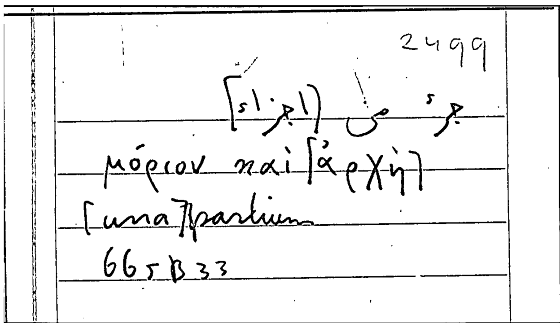 2499
جزء من [اجزاء]
μόριον καὶ [ἀρχὴ]
[una] partium
665 B 33